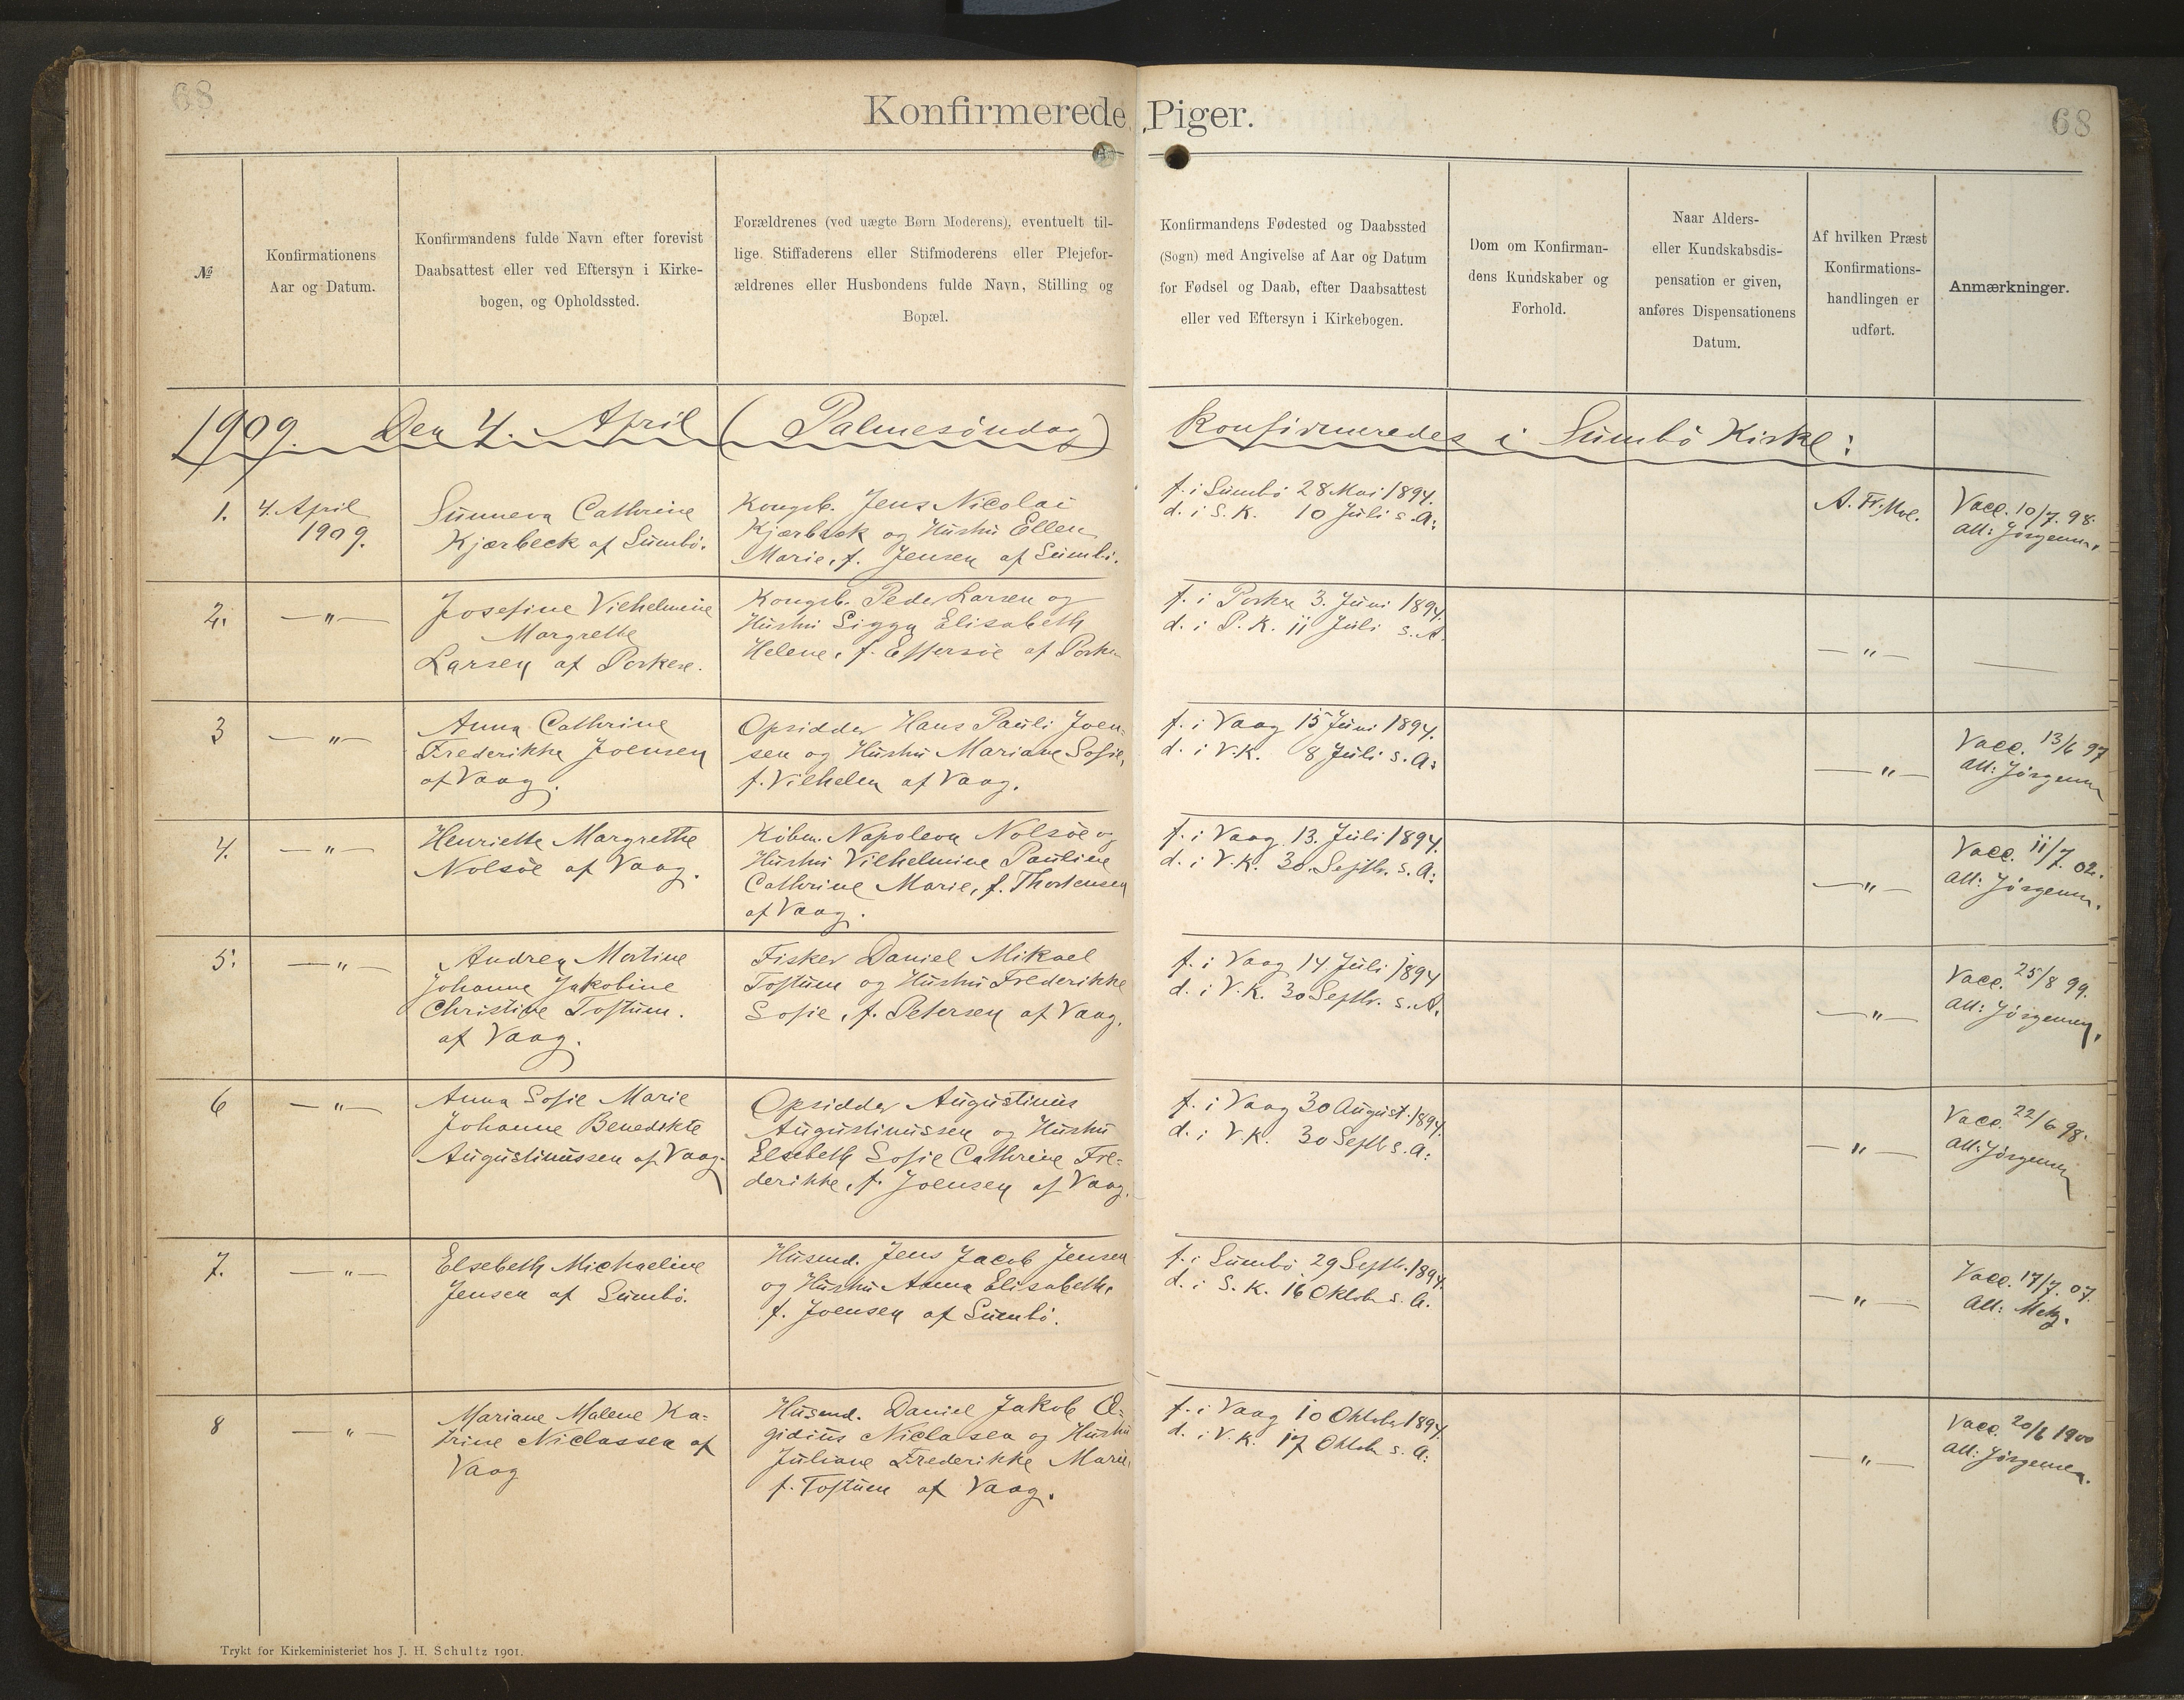 68
Konfirmerede Piger.
68
№
Konfirmationens
Aar og Datum.
Konfirmandens fulde Navn efter forevist
Daabsattest eller ved Eftersyn i Kirke-
bogen, og Opholdssted.
Forældrenes (ved uægte Børn Moderens), eventuelt til-
lige Stiffaderens eller Stifmoderens eller Plejefor-
ældrenes eller Husbondens fulde Navn, Stilling og
Bopæl.
Konfirmandens Fødested og Daabssted
(Sogn) med Angivelse af Aar og Datum
for Fødsel og Daab, efter Daabsattest
eller ved Eftersyn i Kirkebogen.
Dom om Konfirman-
dens Kundskaber og
Forhold.
Naar Alders-
eller Kundskabsdis-
pensation er given,
anføres Dispensationens
Datum.
Af hvilken Præst
Konfirmations-
handlingen er
udført.
Anmærkninger.
1909. Den 4. April (Palmesöndag) Konfirmeredes i Sumbö Kirke:
1.
4. April
1909.
Sunneva Cathrine
Kjærbeck af Sumbö.
Kongsb. Jens Nicolai
Kjærbæk og Hustru Ellen
Marie, f. Jensen af Sumbö.
f. i Sumbö 28 Mai 1894.
d. i S. K. 10 Juli s. A:
A. Fr. Moe.
Vacc. 10/7. 98.
Att: Jörgensen.
2.
—〃—
Josefine Vilhelmine
Margrethe
Larsen af Porkere.
Kongsb. Peder Larsen og
Hustru Sigga Elisabeth
Helene, f. Effersöe af Porkere
f. i Porkere 3. Juni 1894.
d. i P. K. 11 Juli s. A.
—〃—
—
3
—〃—
Anna Cathrine
Frederikke Joensen
af Vaag.
Opsidder Hans Pauli Joen-
sen og Hustru Mariane Sofie,
f. Vilhelm af Vaag.
f. i Vaag 15 Juni 1894.
d. i V. K. 8 Juli s. A:
—〃—
Vacc. 13/6 97
Att: Jörgensen
4.
—〃—
Henriette Margrethe
Nolsöe af Vaag.
Köbm. Napoleon Nolsöe og
Hustru Vilhelmine Pauline
Cathrine Marie, f. Thortensen
af Vaag.
f. i Vaag 13. Juli 1894.
d. i V. K. 30. Septbr. s. A:
—〃—
Vacc. 11/7. 02.
Att: Jörgensen.
5.
—〃—
Andrea Martine
Johanne Jakobine
Christine Toftum.
af Vaag.
Fisker Daniel Mikael
Toftum og Hustru Frederikke
Sofie, f. Petersen af Vaag.
f. i Vaag 14 Juli 1894
d. i V. K. 30 Septbr. s. A.
—〃—
Vacc. 25/8 99.
Att: Jörgensen.
6
—〃—
Anna Sofie Marie
Johanne Benedikte
Augustinussen af Vaag.
Opsidder Augustinus
Augustinussen og Hustru
Elsebeth Sofie Cathrine Fre-
derikke, f. Joensen af Vaag.
f. i Vaag 30 August 1894.
d. i V. K. 30 Septb s. A:
—〃—
Vacc. 22/6 98.
Att: Jörgensen
7.
—〃—
Elsebeth Michaeline
Jensen af Sumbö.
Husmd. Jens Jacob Jensen
og Hustru Anna Elisabeth,
f. Joensen af Sumbö.
f. i Sumbö 29 Septb. 1894.
d. i S. K. 16 Oktobr s. A.
—〃—
Vacc. 17/7. 07.
Att: Metz.
8
—〃—
Mariane Malene Ka-
trine Niclassen af
Vaag
Husmd. Daniel Jakob Æ-
gidius Niclasen og Hustru
Juliane Frederikke Marie,
f. Toftum af Vaag.
f. i Vaag 10 Oktober 1894.
d. i V. K. 17 Oktobr s. A:
—〃—
Vacc. 20/6 1900
Att: Jörgensen.
Trykt for Kirkeministeriet hos J. H. Schultz 1901.